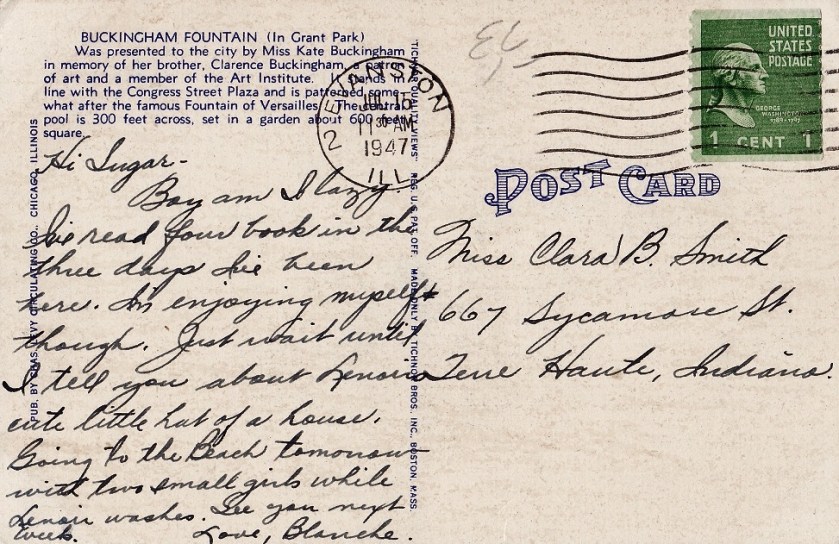 BUCKINGHAM FOUNTAIN (In Grant Park)
Was presented to the city by Miss Kate Buckingham
in memory of her brother, Clarence Buckingham, a patron
of art and a member of the Art Institute. It stands in
line with the Congress Street Plaza and is patterned some-
what after the famous Fountain of Versailles. The central
pool is 300 feet across, set in a garden about 600 feet
square.
Hi Sugar-
Boy am I lazy
I've read four book in the
three days I've been
here. Im enjoying myself
though. Just wait until
I tell you about Lenoir
cute little hut of a house.
Going to the Beach tomorrow
with two small girls while
Lenoir washes. See you next
week. Love, Blanche.
PUB. BY CHAS. LEVY CIRCULATING CO., CHICAGO, ILLINOIS
"TICHNOR QUALITY VIEWS" REG. U. S. PAT. OFF. MADE ONLY BY TICHNOR BROS. INC., BOSTON, MASS.
EVANSTON
2
JUL 16
11 30 AM
1947
ILL.
UNITED
STATES
POSTAGE
GEORGE
WASHINGTON
1789-1797
1 CENT 1
POST CARD
Miss Clara B. Smith
667 Sycamore St.
Terre Haute, Indiana.